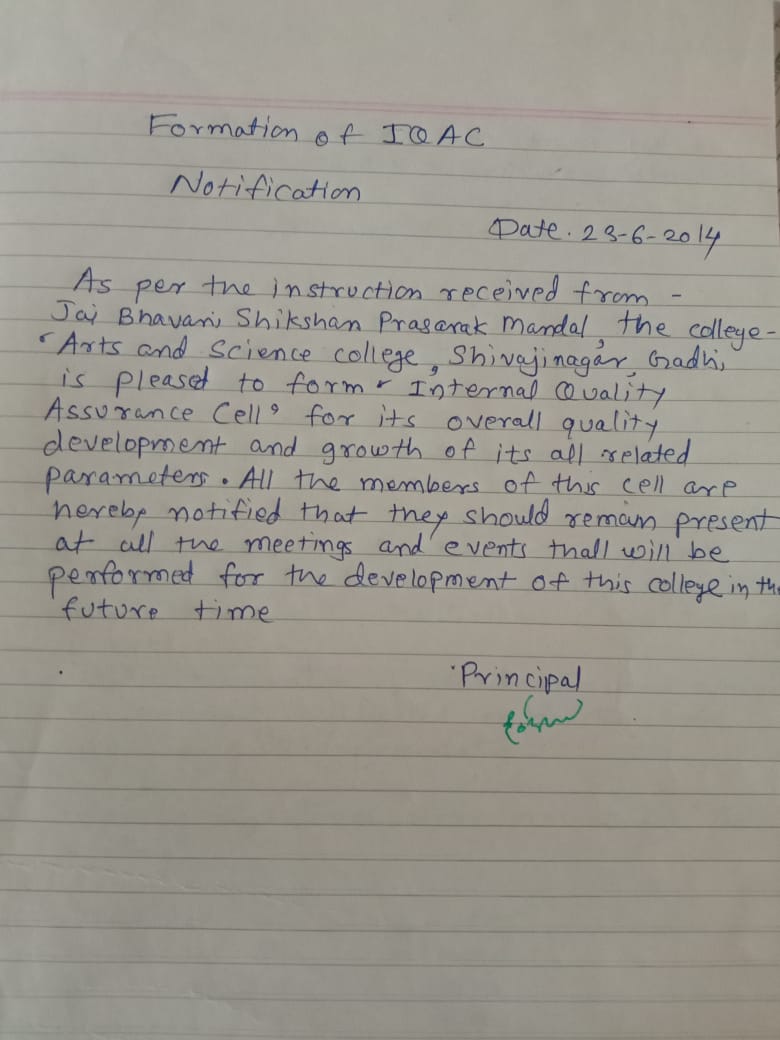 Formation of IQAC
Notification
Date. 23-6-2014
As per the instruction received from -
Jai Bhavani Shikshan Prasarak Mandal, the college-
"Arts and Science college, Shivajinagar, Gadhi,
is pleased to form "Internal Quality
Assurance Cell" for its overall quality
development and growth of its all related
parameters. All the members of this cell are
hereby notified that they should remain present
at all the meetings and events thall will be
performed for the development of this college in the
future time
Principal